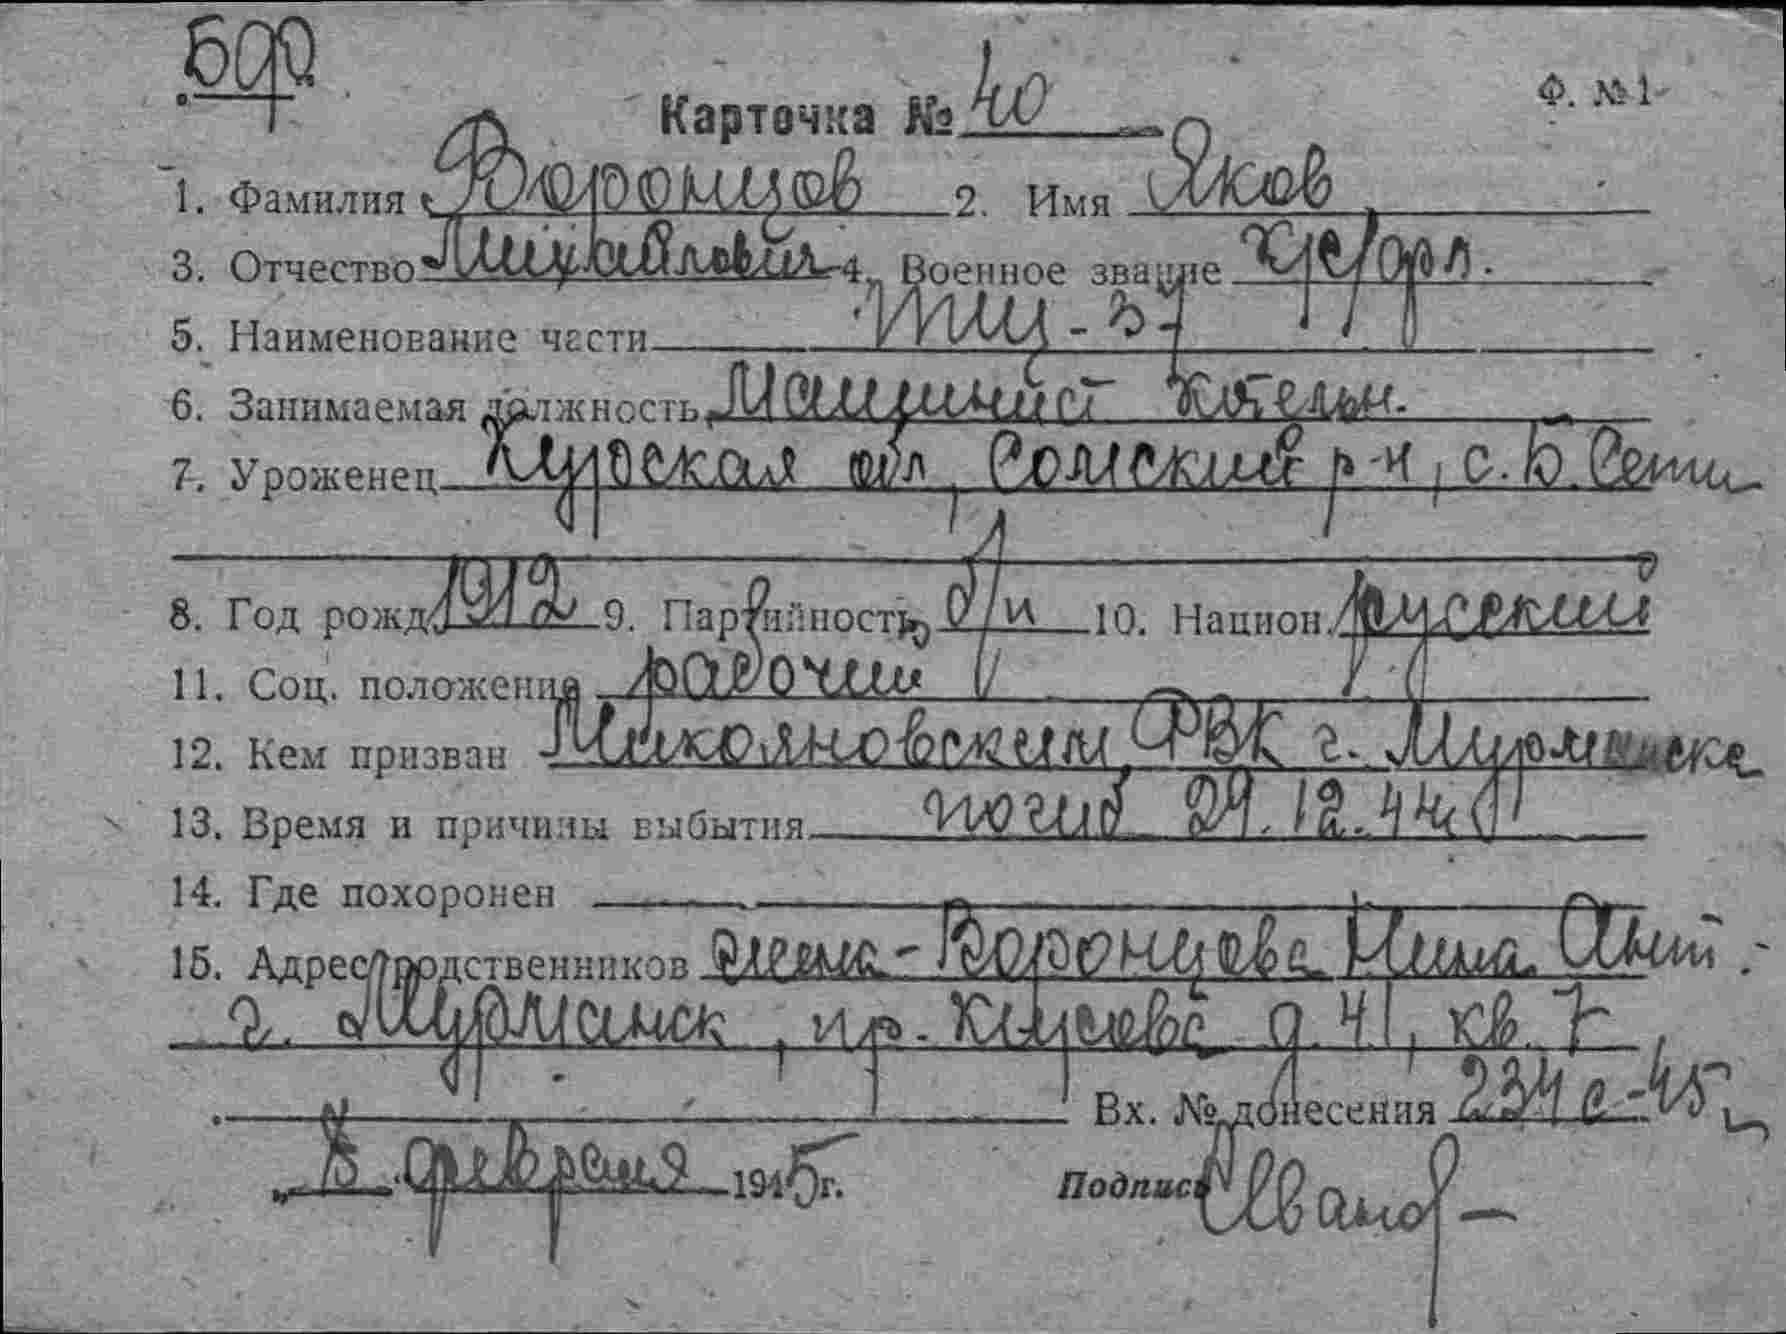 БФ
Карточка № 40
Ф. № 1
1. Фамилия Воронцов 2. Имя Яков
3. Отчество Михайлович 4. Военное звание кр/фл.
5. Наименование части ТЩ-37
6. Занимаемая должность Машинист котельн.
7. Уроженец Курская обл, Сомский р-н, с. Б. Сети
8. Год рожд. 1912 9. Партийность б/п 10. Национ. русский
11. Соц. положение рабочий
12. Кем призван Микояновским РВК г. Мурманска
13. Время и причины выбытия погиб 29.12.44г
14. Где похоронен
15. Адрес родственников жена - Воронцова Нина Ант.
г. Мурманск, пр. д. 41, кв. 7
Вх. № донесения 234с-45
„ 8 февраля 1945г. Подпись Иванов